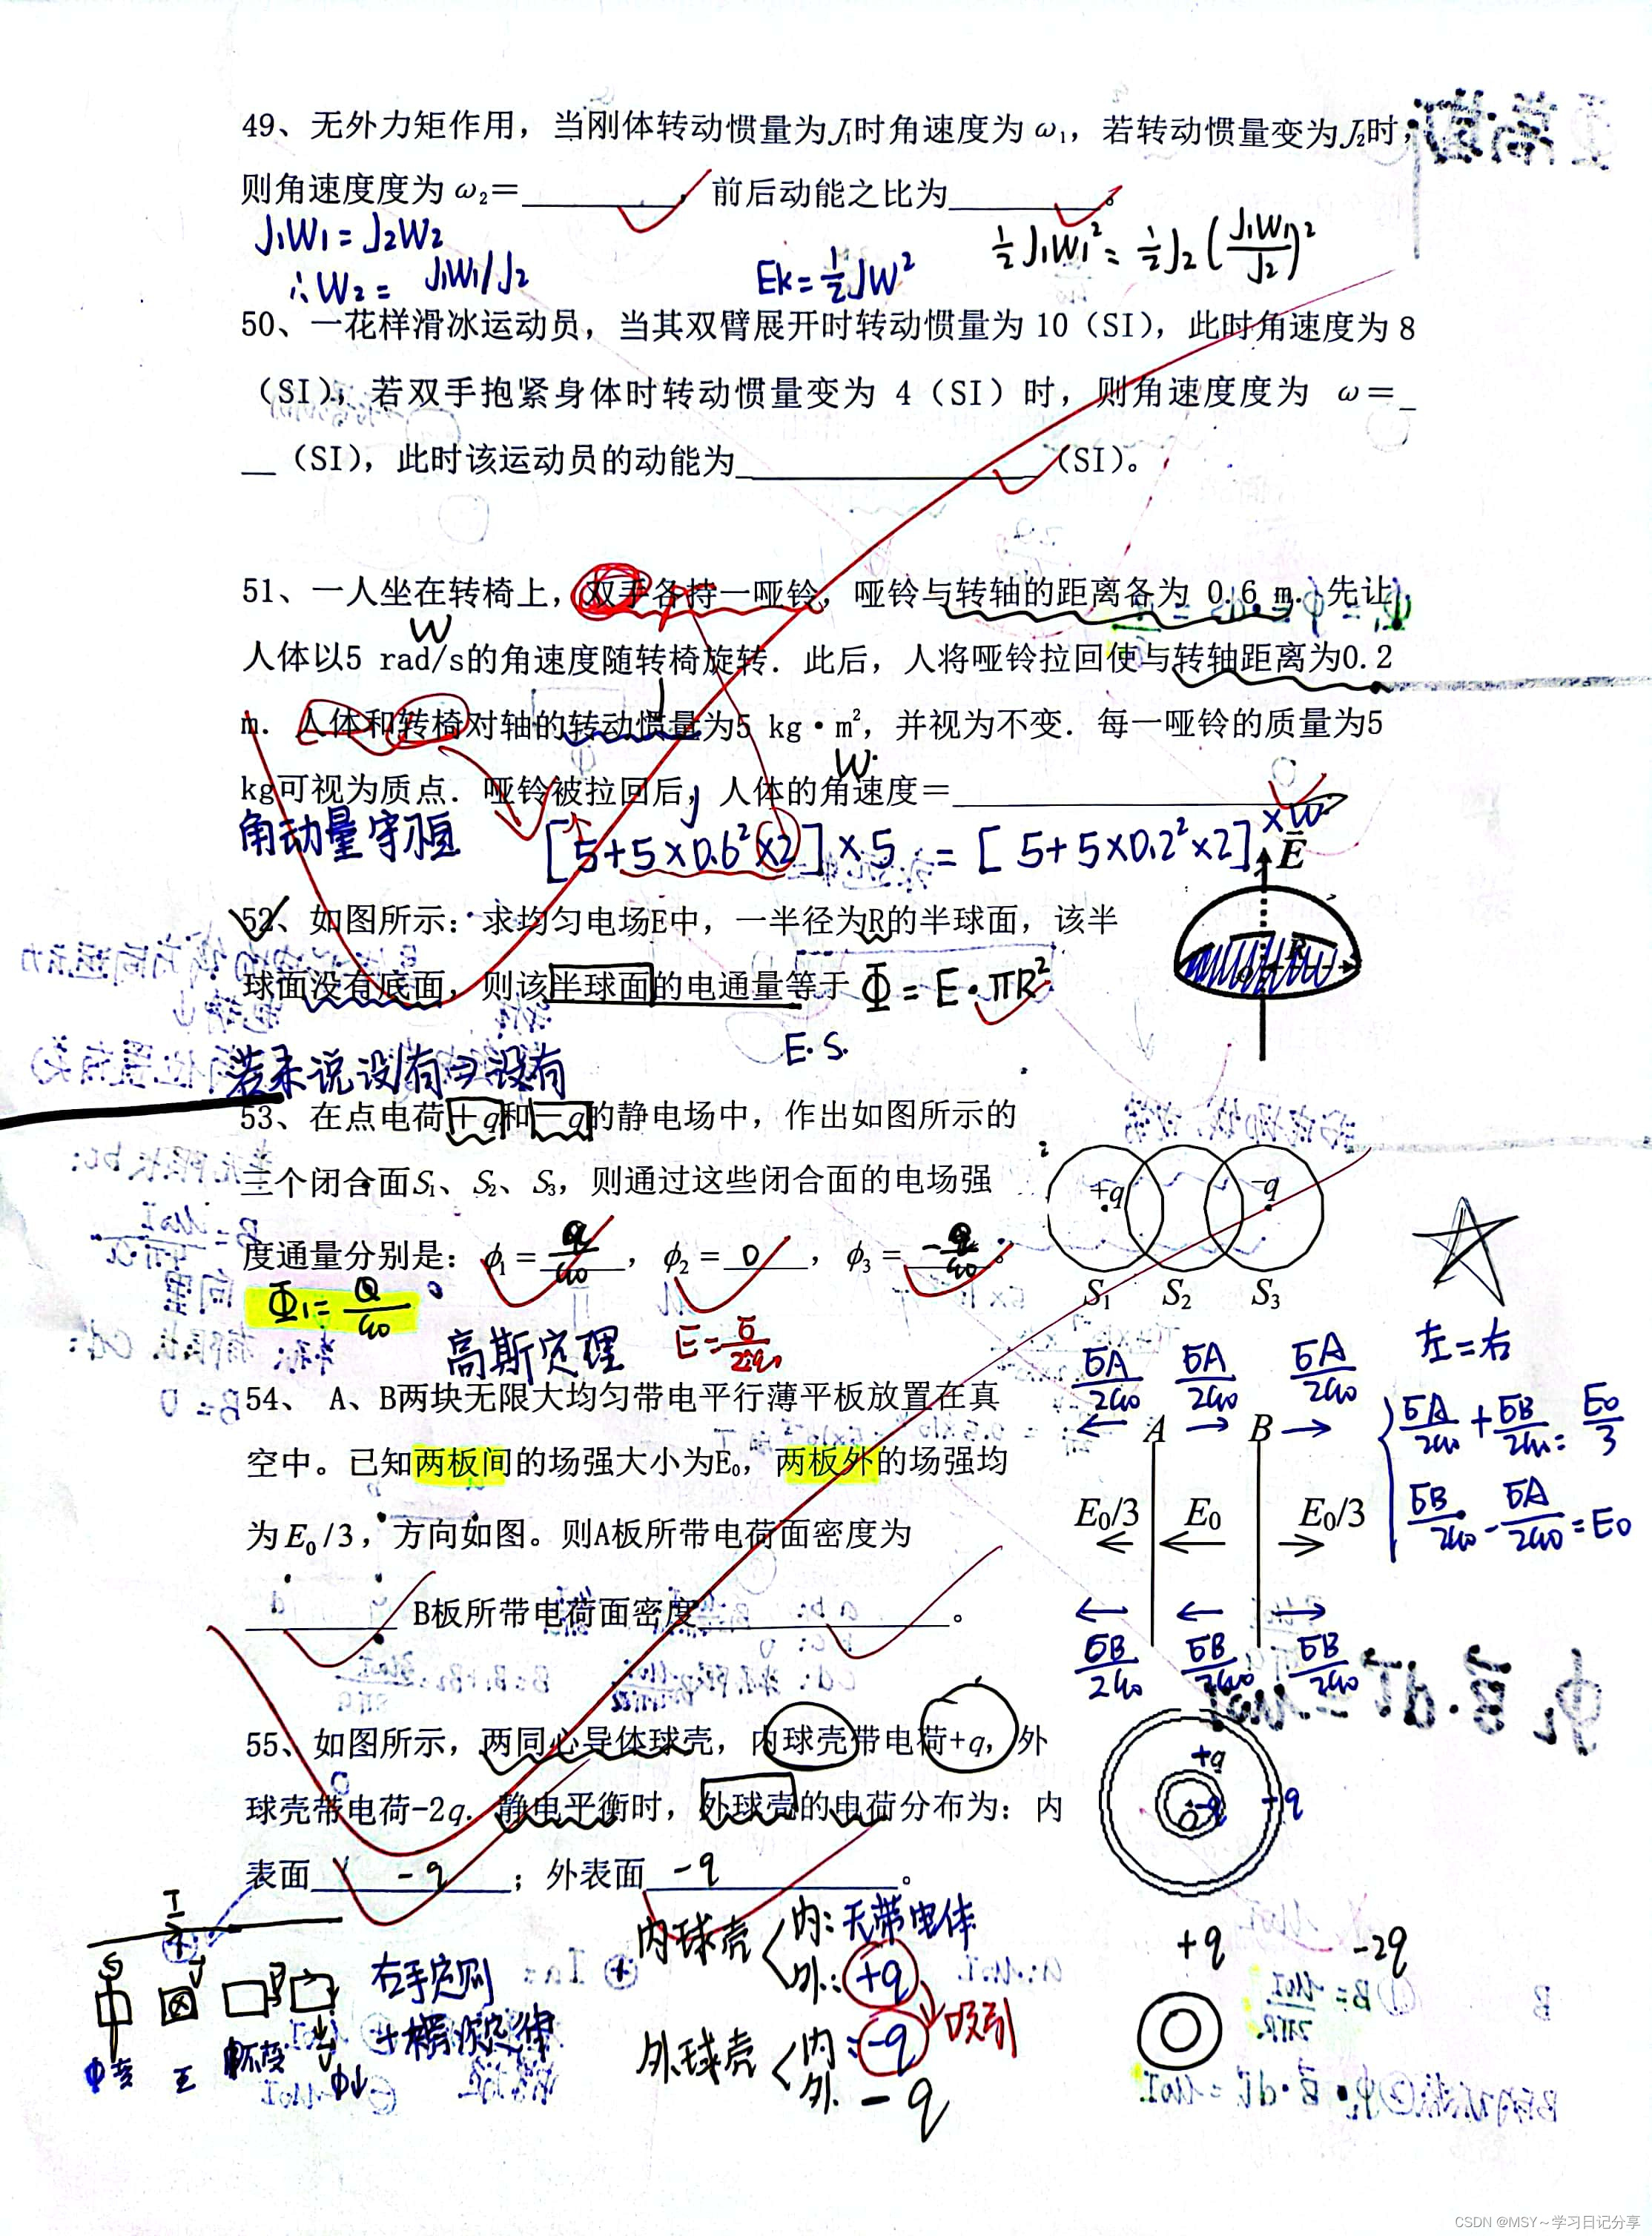 49、无外力矩作用，当刚体转动惯量为J₁时角速度为 ω₁，若转动惯量变为J₂时，
则角速度度为 ω₂＝________，前后动能之比为________。
J₁W₁ = J₂W₂
∴W₂ = J₁W₁/J₂
Ek = ½JW²
½J₁W₁² = ½J₂(J₁W₁/J₂)²
50、一花样滑冰运动员，当其双臂展开时转动惯量为 10（SI），此时角速度为 8
（SI），若双手抱紧身体时转动惯量变为 4（SI）时，则角速度度为 ω＝_
__（SI），此时该运动员的动能为________________（SI）。
51、一人坐在转椅上，双手各持一哑铃，哑铃与转轴的距离各为 0.6 m．先让
W
人体以5 rad/s的角速度随转椅旋转．此后，人将哑铃拉回使与转轴距离为0.2
J
m．人体和转椅对轴的转动惯量为5 kg·m²，并视为不变．每一哑铃的质量为5
W
kg可视为质点．哑铃被拉回后，人体的角速度＝________________
角动量守恒
[5+5×0.6²×2]×5 = [5+5×0.2²×2]×W
52、如图所示：求均匀电场E中，一半径为R的半球面，该半
球面没有底面，则该半球面的电通量等于 Φ = E·πR²
E·S.
E
R
若未说没有⇒没有
53、在点电荷＋q和－q的静电场中，作出如图所示的
三个闭合面S₁、S₂、S₃，则通过这些闭合面的电场强
度通量分别是：φ₁＝q/ε₀，φ₂＝0，φ₃＝-q/ε₀。
+q
-q
S₁ S₂ S₃
Φ₁= Q/ε₀
高斯定理
E=σ/2ε₀
54、 A、B两块无限大均匀带电平行薄平板放置在真
空中。已知两板间的场强大小为E₀，两板外的场强均
为E₀/3，方向如图。则A板所带电荷面密度为
________ B板所带电荷面密度____________。
σA/2ε₀ σA/2ε₀ σA/2ε₀
A B
E₀/3 E₀ E₀/3
σB/2ε₀ σB/2ε₀ σB/2ε₀
左=右
σA/2ε₀ + σB/2ε₀ = E₀/3
σB/2ε₀ - σA/2ε₀ = E₀
55、如图所示，两同心导体球壳，内球壳带电荷+q，外
球壳带电荷-2q．静电平衡时，外球壳的电荷分布为：内
表面 -q ；外表面 -q 。
+q
-q
-q
O
+q -2q
内球壳
内：无带电体
外：+q
吸引
外球壳
内：-q
外 -q
I
右手定则
+楞次定律
Φ变
Φ不变
Φ↓
CSDN @MSY～学习日记分享